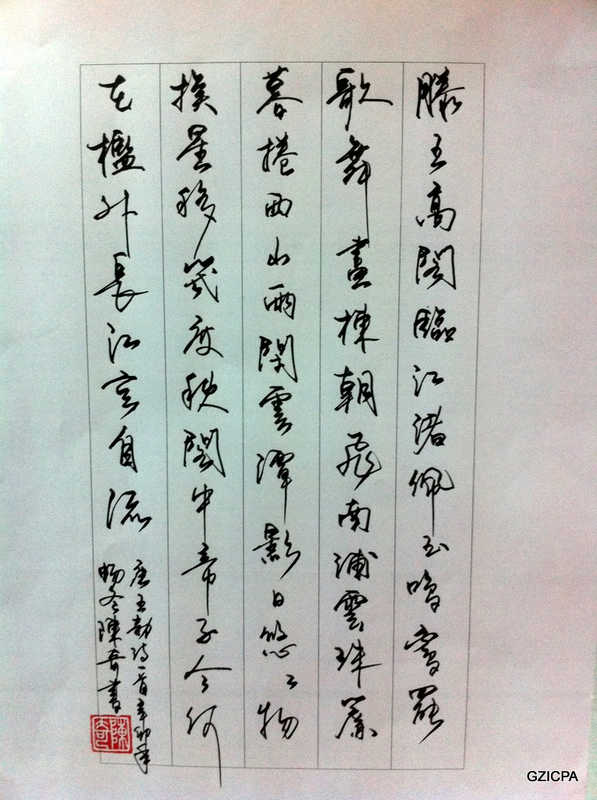 滕王高閣臨江渚佩玉鳴鸞罷
歌舞畫棟朝飛南浦雲珠簾
暮捲西山雨閑雲潭影日悠々物
換星移幾度秋閣中帝子今何
在檻外長江空自流
唐王勃詩一首辛卯年
冬陳奇書
陳奇
GZICPA